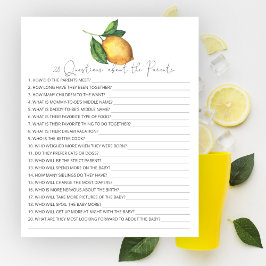 20 Questions about the Parents
1. HOW DID THE PARENTS MEET?
2. HOW LONG HAVE THEY BEEN TOGETHER?
3. HOW MANY CHILDREN DO THEY WANT?
4. WHAT IS MOMMY-TO-BE'S MIDDLE NAME?
5. WHAT IS DADDY-TO-BE'S MIDDLE NAME?
6. WHAT IS THEIR FAVORITE TYPE OF FOOD?
7. WHAT IS THEIR FAVORITE THING TO DO TOGETHER?
8. WHAT IS THEIR DREAM VACATION?
9. WHO IS THE BETTER COOK?
10. WHO WEIGHED MORE WHEN THEY WERE BORN?
11. DO THEY PREFER CATS OR DOGS?
12. WHO WILL BE THE STRICT PARENT?
13. WHO WILL SPEND MORE ON THE BABY?
14. HOW MANY SIBLINGS DO THEY HAVE?
15. WHO WILL CHANGE THE MOST DIAPERS?
16. WHO IS MORE NERVOUS ABOUT THE BIRTH?
17. WHO WILL TAKE MORE PICTURES OF THE BABY?
18. WHO WILL SPOIL THE BABY MORE?
19. WHO WILL GET UP MORE AT NIGHT WITH THE BABY?
20. WHAT ARE THEY MOST LOOKING FORWARD TO ABOUT THE BABY?